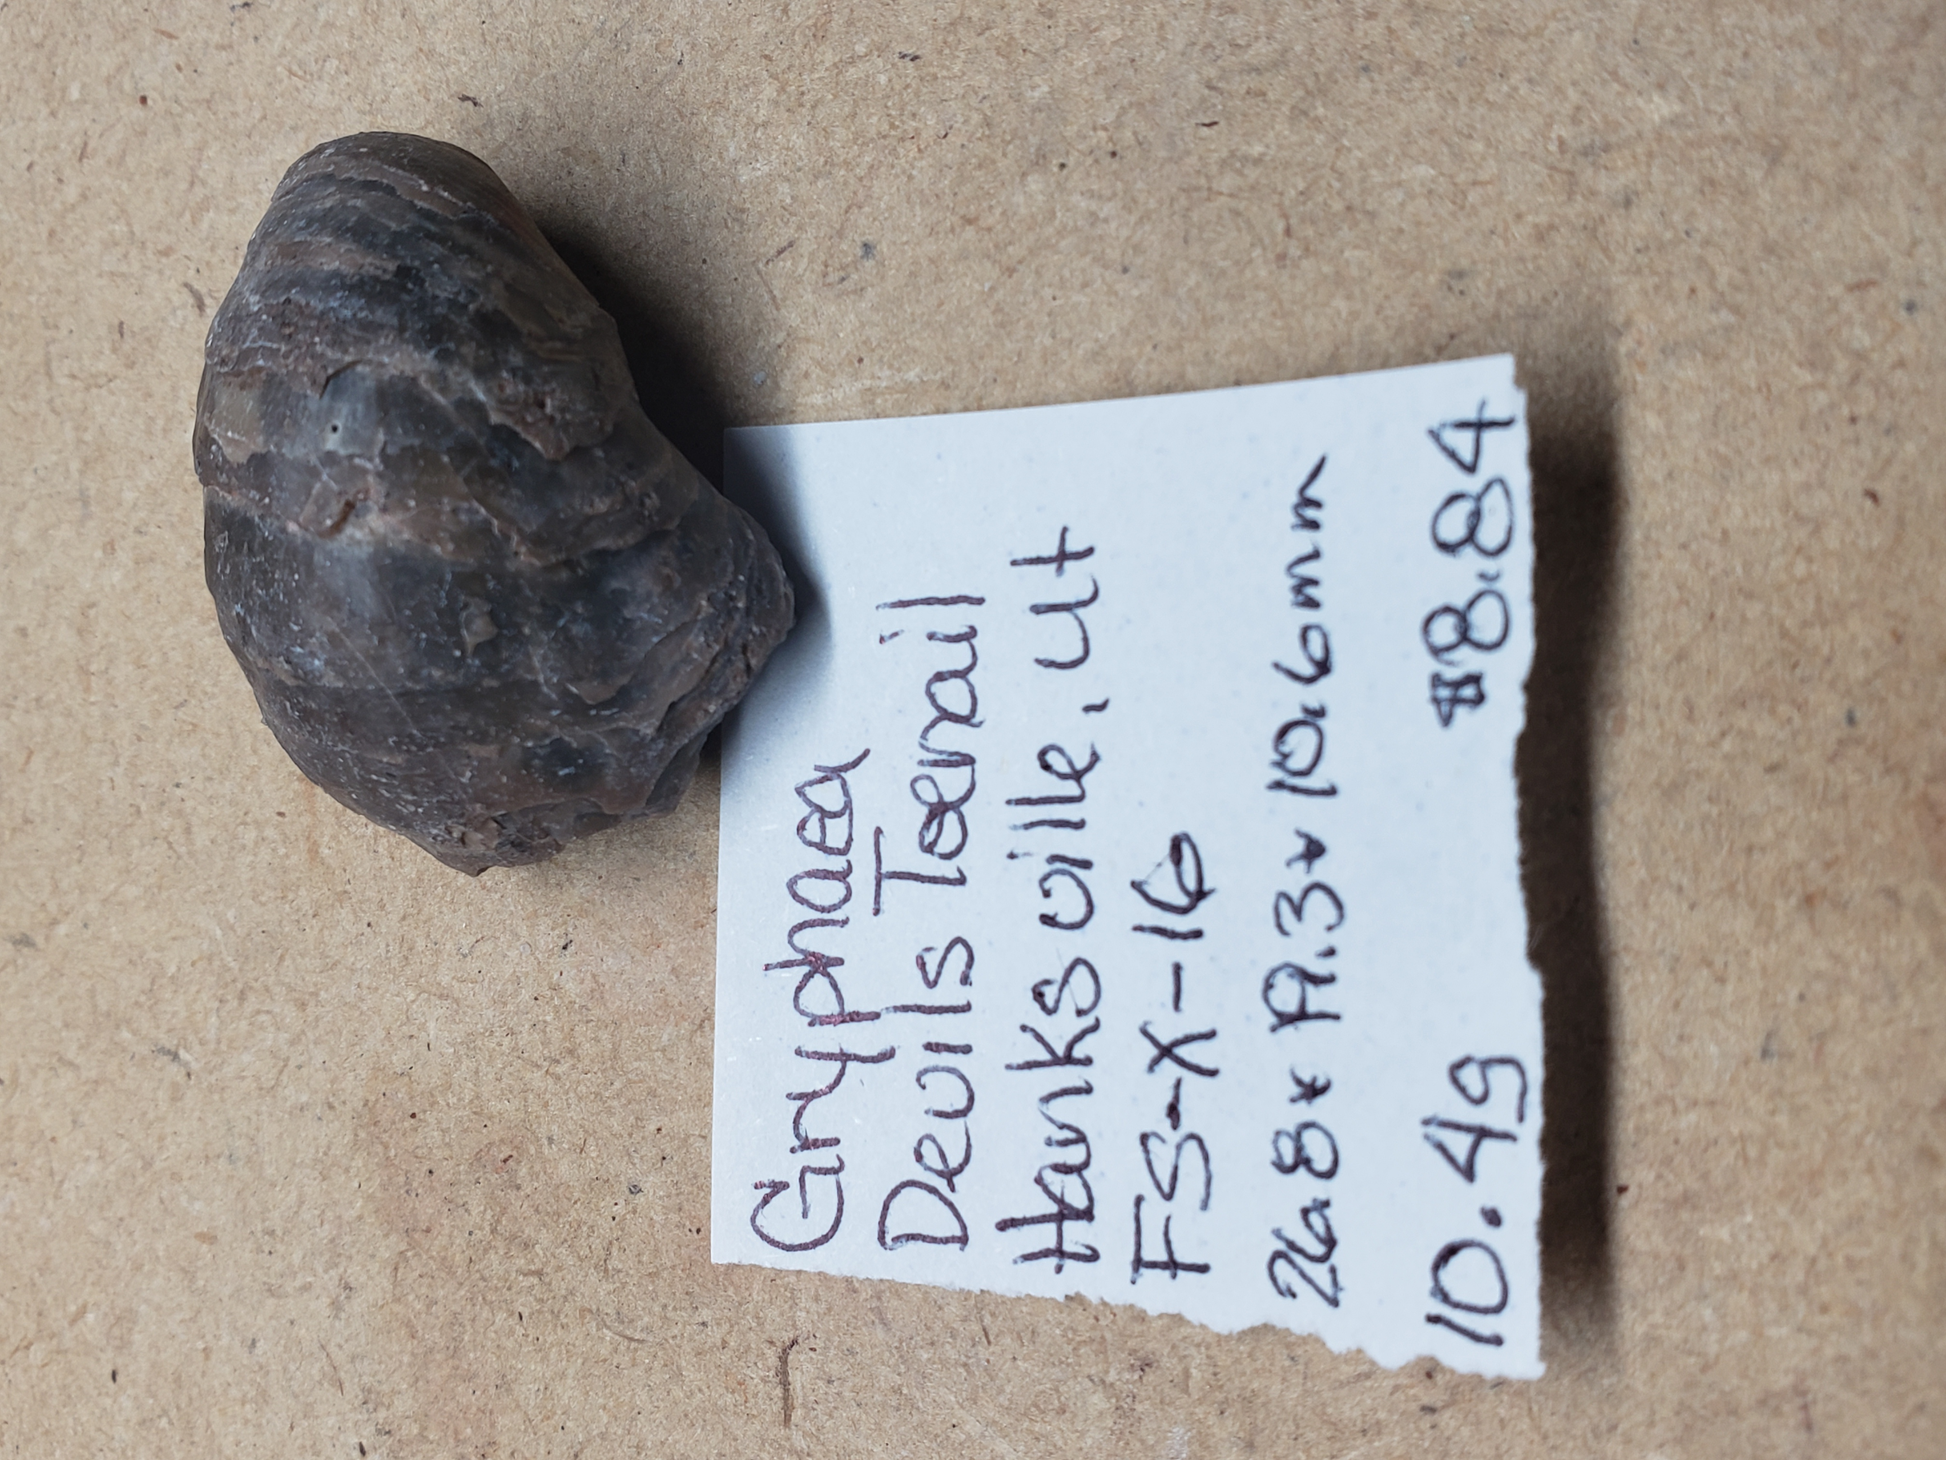 Gryphaea
Devils Toenail
Hanksville, Ut
FS-X-16
26.8 x 19.3 x 10.6mm
10.4g $8.84